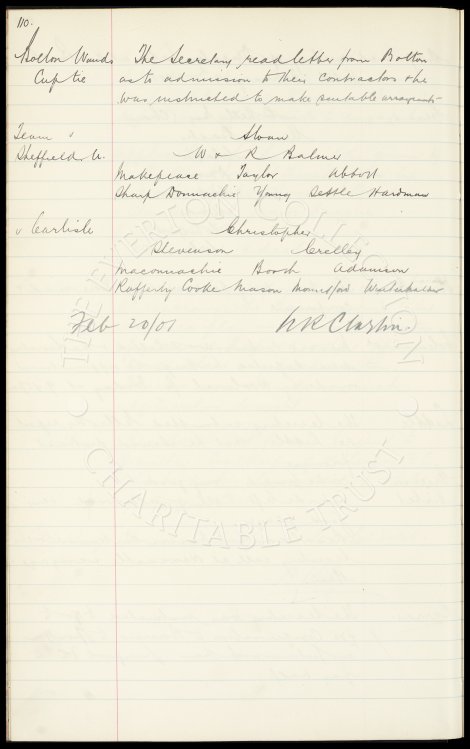 110.
Bolton Wands The Secretary read letter from Bolton
Cup tie as to admission to their contractors & he
was instructed to make suitable arrangmts
Team v Sloan
Sheffield U. W & R Balmer
Makepeace Taylor Abbott
Sharp Donnachie Young Settle Hardman
v Carlisle Christopher
Stevenson Crelley
Maconnachie Booth Adamson
Rafferty Cooke Mason
Feb 20/07 W R Clayton
THE EVERTON COLLECTION
CHARITABLE TRUST